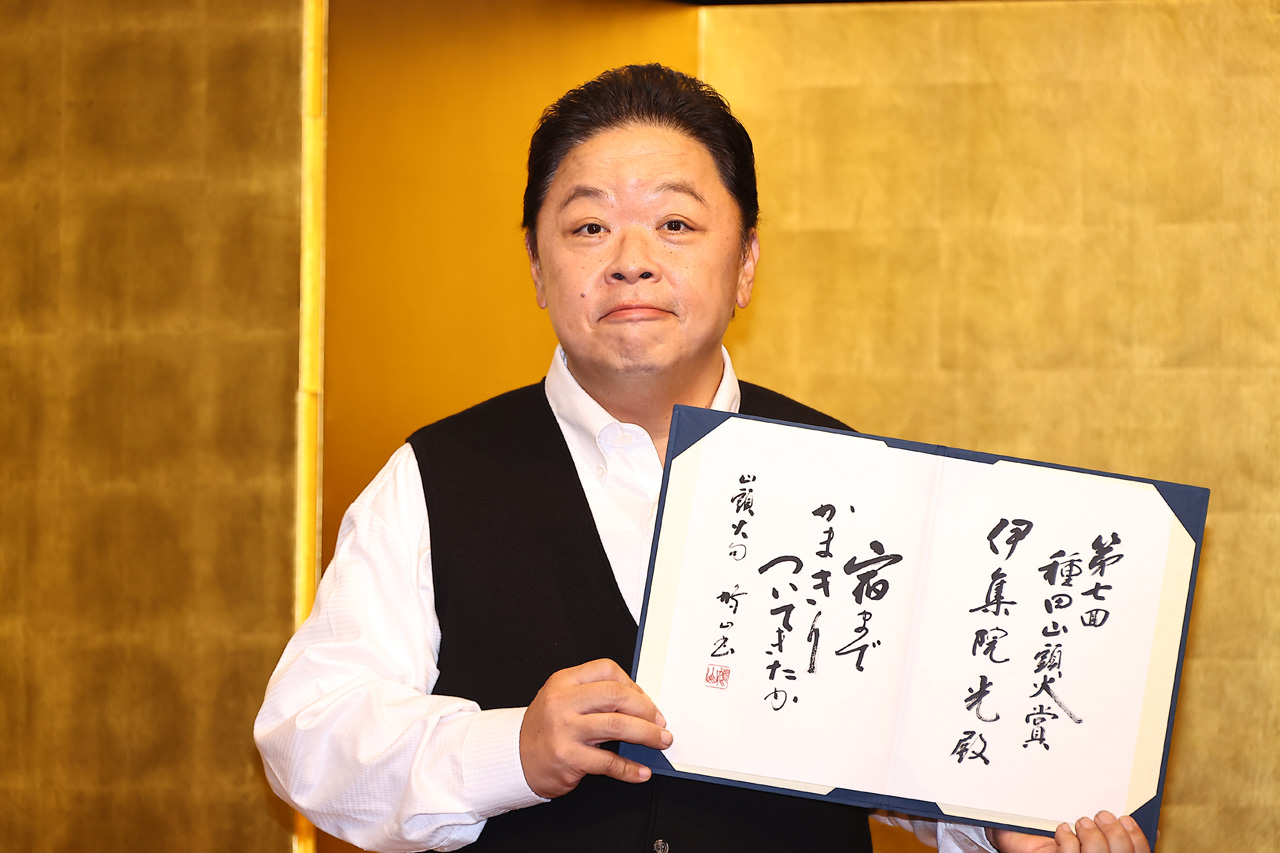 第七回
種田山頭火賞
伊集院光殿
宿まで
かまきり
ついてきたか
山頭火句